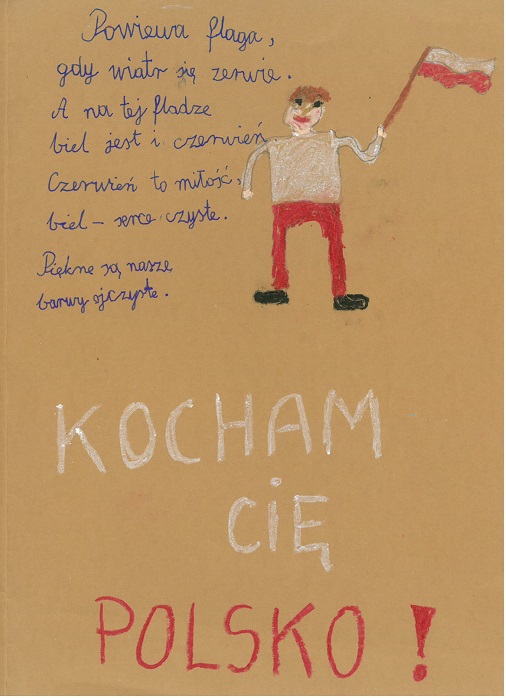 Powiewa flaga,
gdy wiatr się zerwie.
A na tej fladze
biel jest i czerwień
Czerwień to miłość,
biel – serce czyste.
Piękne są nasze
barwy ojczyste.
KOCHAM
CIĘ
POLSKO!